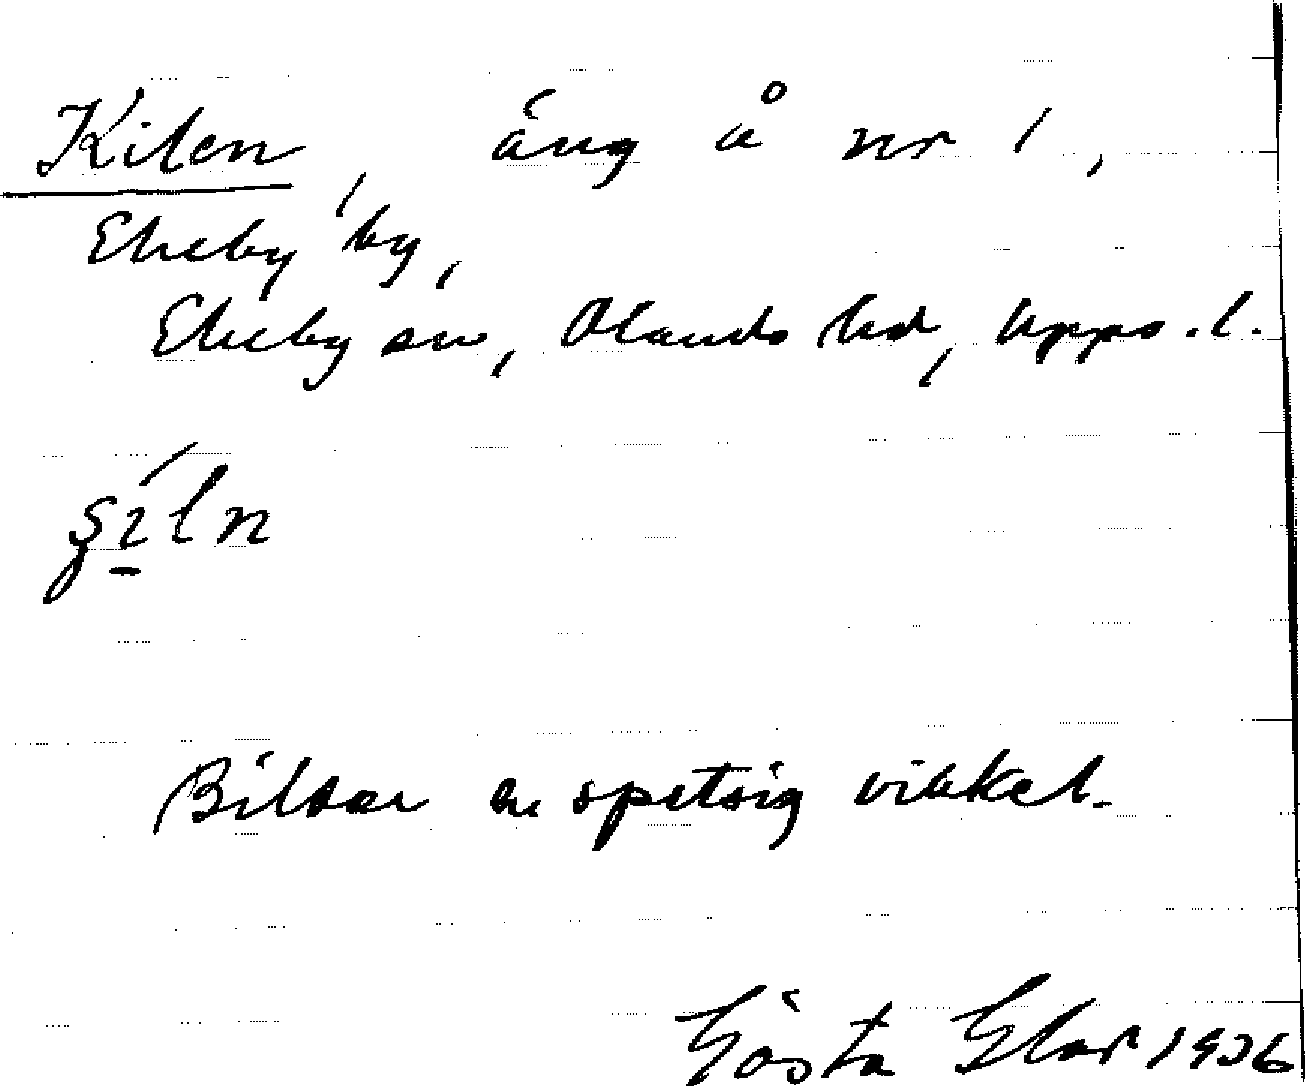 Kilen, äng å nr 1,
Ekeby by,
Ekeby sn, Olands hd, Upps. l.
Bildar en spetsig vinkel.
Gösta 1936